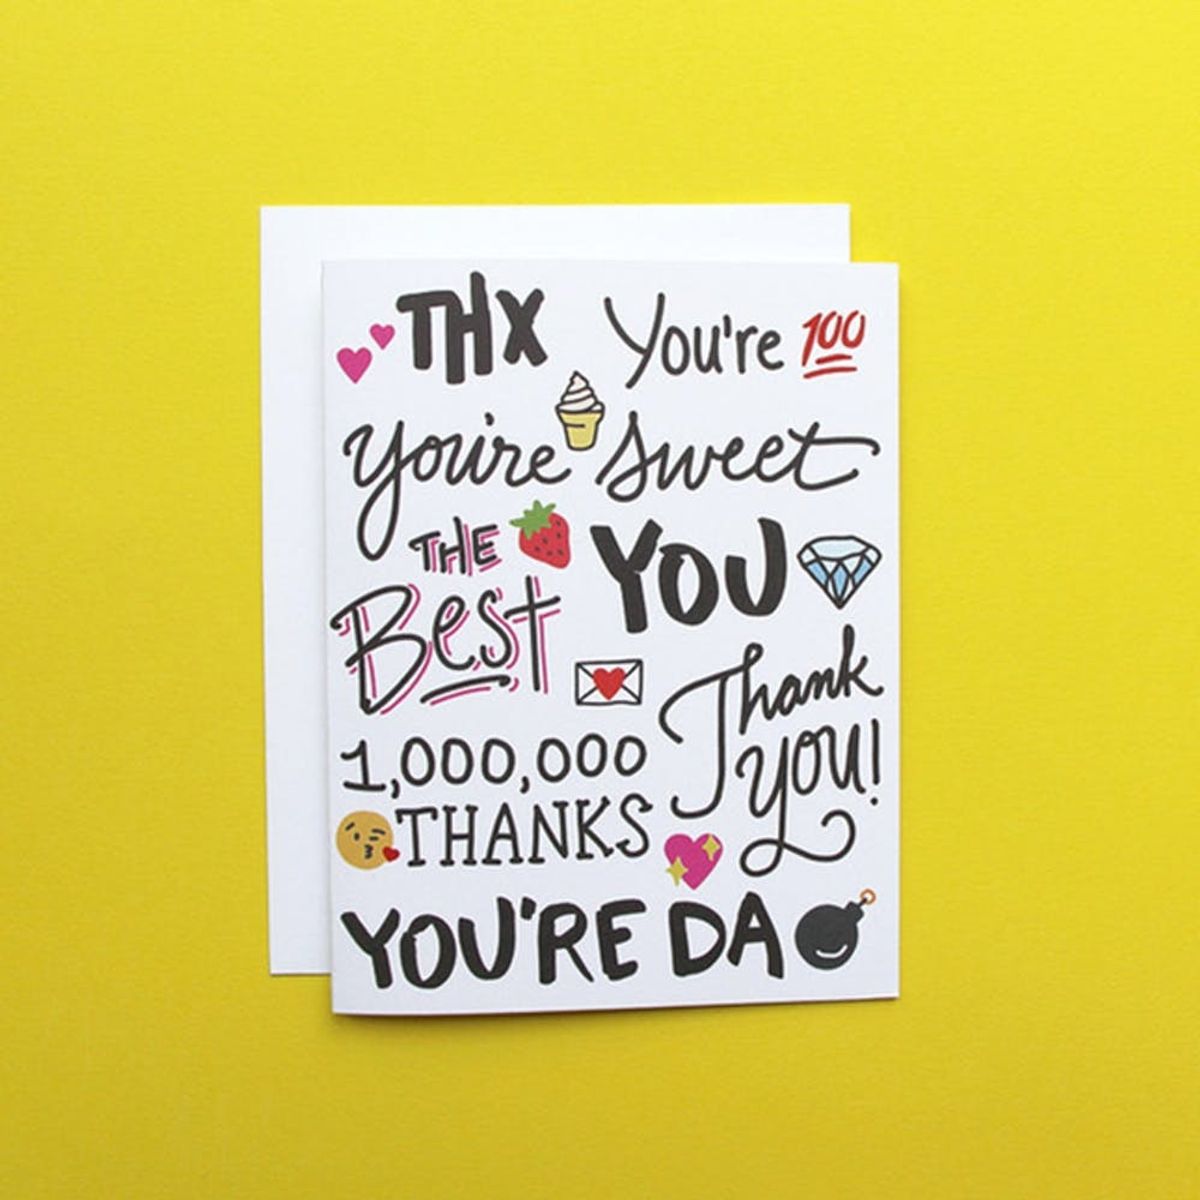 THX
You're 100
you're sweet
THE
Best
YOU
Thank
you!
1,000,000
THANKS
YOU'RE DA